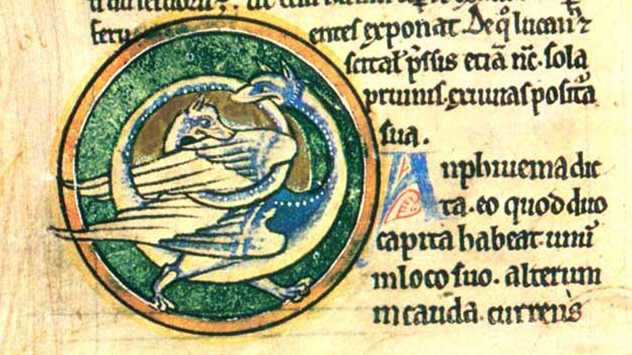 feru entes exponat. De qͦ lucan᷒
etiā nc̄. sola
pruinis. exuuias
sua.
Anphiuema dic
ta. eo quod duo
capita habeat. unū
in loco suo. alterum
in cauda. currens